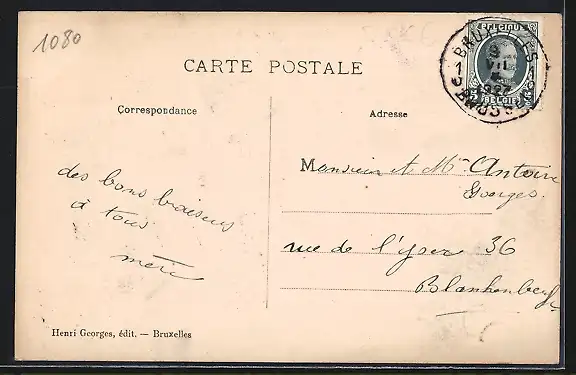 1080
CARTE POSTALE
BRUXELLES
9
1 VII
1927
BRUSSEL
BELGIQUE
BELGIË
Correspondance
Adresse
des bons baisers
à tous
Monsieur et Mme Antoine
Georges.
rue de l'yser 36
Blankenberghe
Henri Georges, édit. — Bruxelles